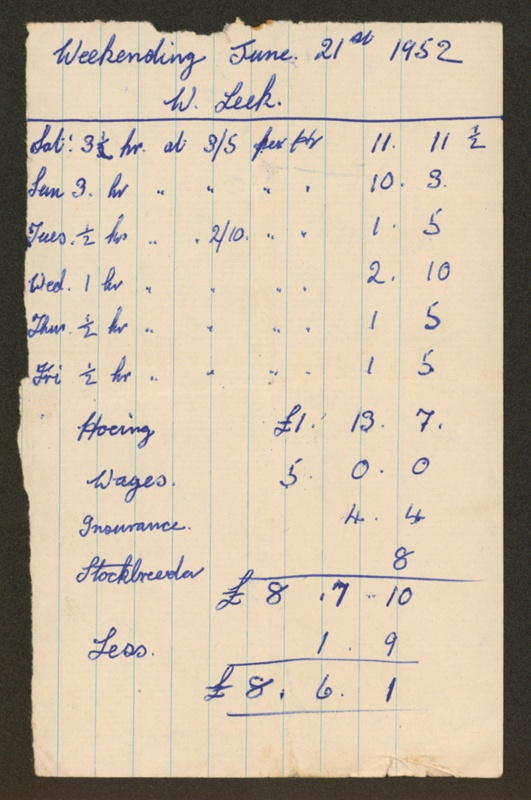 Weekending June. 21st 1952
W. Leek.
Sat: 3½ hr. at 3/5 per Hr 11. 11 ½
Sun 3. hr " " " " 10. 3.
Tues. ½ hr " " 2/10. " " 1. 5
Wed. 1 hr " " " " 2. 10
Thur. ½ hr " " " " 1 5
Fri ½ hr " " " " 1 5
Hoeing £1. 13. 7.
Wages. 5. 0. 0
Insurance. 4. 4
Stockbreeder 8
£ 8 . 7 . 10
Less. 1 . 9
£ 8. 6. 1